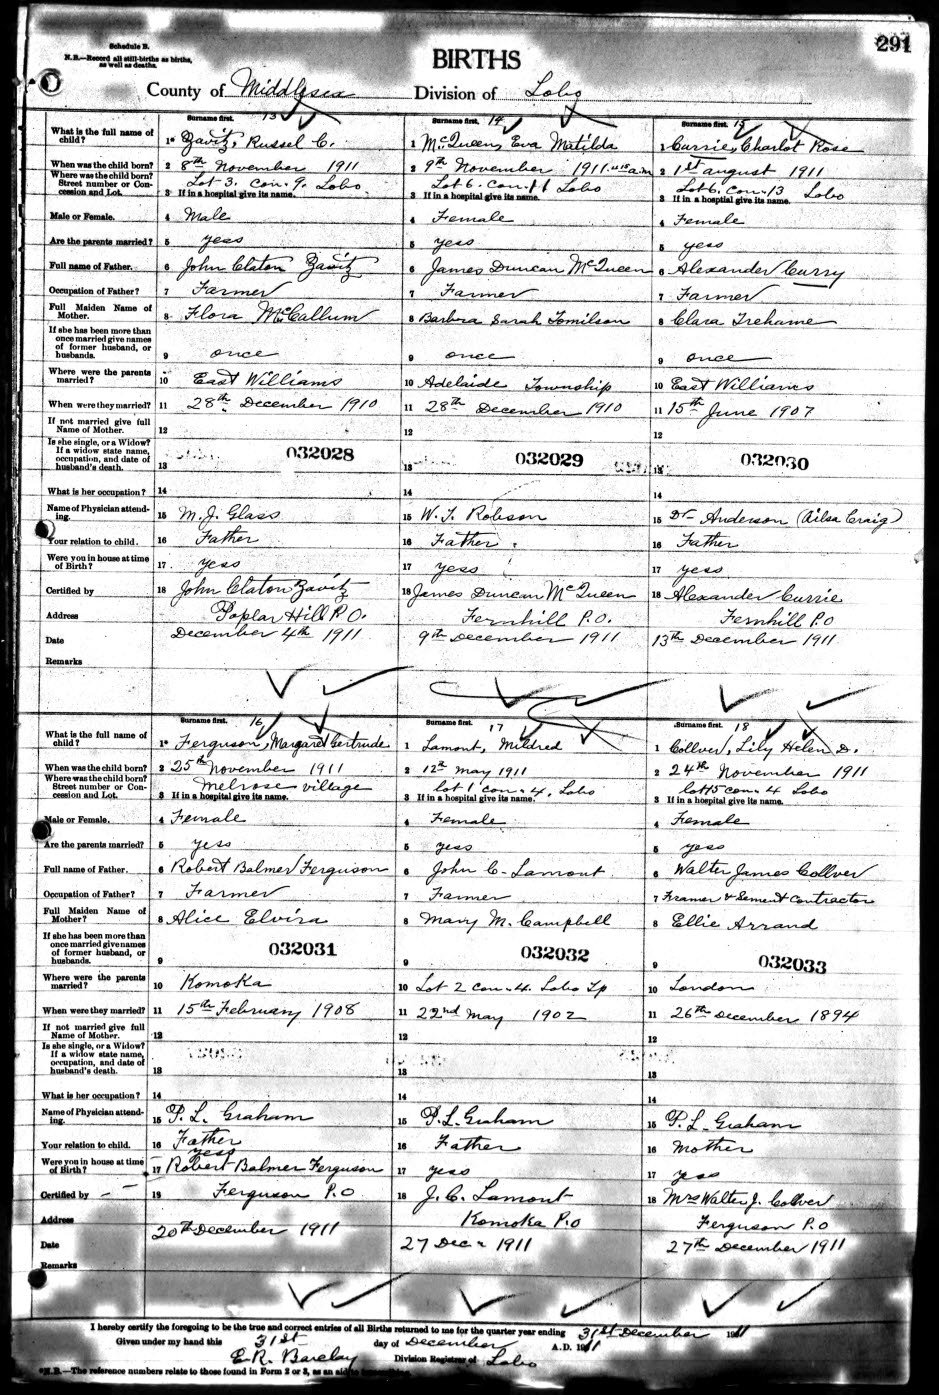 291
Schedule B.
N.B.—Record all still-births as births,
as well as deaths.
BIRTHS
County of Middlesex Division of Lobo
Surname first. 13 Surname first. 14 Surname first. 15
What is the full name of child? 1* Zavitz, Russel C. 1 McQueen, Eva Matilda 1 Currie, Charlot Rose
When was the child born? 2 8th November 1911 2 9th November 1911 2 1st august 1911
Where was the child born? Street number or Concession and Lot. Lot 3. Con. 9. Lobo Lot 6. Con. 11 Lobo Lot 6. Con. 13 Lobo
3 If in a hospital give its name. 3 If in a hospital give its name. 3 If in a hospital give its name.
Male or Female. 4 Male 4 Female 4 Female
Are the parents married? 5 yess 5 yess 5 yess
Full name of Father. 6 John Claton Zavitz 6 James Duncan McQueen 6 Alexander Curry
Occupation of Father? 7 Farmer 7 Farmer 7 Farmer
Full Maiden Name of Mother. 8 Flora McCallum 8 Barbara Sarah Tomilson 8 Clara Trehame
If she has been more than once married give names of former husband, or husbands. 9 once 9 once 9 once
Where were the parents married? 10 East Williams 10 Adelaide Township 10 East Williams
When were they married? 11 28th December 1910 11 28th December 1910 11 15th June 1907
If not married give full Name of Mother. 12 12 12
Is she single, or a Widow? If a widow state name, occupation, and date of husband's death. 13 032028 13 032029 13 032030
What is her occupation? 14 14 14
Name of Physician attending. 15 M. J. Glass 15 W. J. Robson 15 Dr Anderson (Ailsa Craig)
Your relation to child. 16 Father 16 Father 16 Father
Were you in house at time of Birth? 17 yess 17 yess 17 yess
Certified by 18 John Claton Zavitz 18 James Duncan McQueen 18 Alexander Currie
Address Poplar Hill P.O. Fernhill P.O. Fernhill P.O
Date December 4th 1911 9th December 1911 13th December 1911
Remarks
Surname first. 16 Surname first. 17 Surname first. 18
What is the full name of child? 1* Ferguson, Margaret Gertrude 1 Lamont, Mildred 1 Collver, Lily Helen D.
When was the child born? 2 25th November 1911 2 12th May 1911 2 24th November 1911
Where was the child born? Street number or Concession and Lot. Melrose village lot 1 con. 4. Lobo lot 15 con. 4 Lobo
3 If in a hospital give its name. 3 If in a hospital give its name. 3 If in a hospital give its name.
Male or Female. 4 Female 4 Female 4 Female
Are the parents married? 5 yess 5 yess 5 yess
Full name of Father. 6 Robert Balmer Ferguson 6 John C. Lamont 6 Walter James Collver
Occupation of Father? 7 Farmer 7 Farmer 7 Framer & Sement Contractor
Full Maiden Name of Mother? 8 Alice Elvira 8 Mary M. Campbell 8 Ellie Arrand
If she has been more than once married give names of former husband, or husbands. 9 032031 9 032032 9 032033
Where were the parents married? 10 Komoka 10 Lot 2 con. 4. Lobo Tp 10 London
When were they married? 11 15th February 1908 11 22nd May 1902 11 26th December 1894
If not married give full Name of Mother. 12 12 12
Is she single, or a Widow? If a widow state name, occupation, and date of husband's death. 13 13 13
What is her occupation? 14 14 14
Name of Physician attending. 15 P. L. Graham 15 P. L. Graham 15 P. L. Graham
Your relation to child. 16 Father 16 Father 16 Mother
Were you in house at time of Birth? yess 17 Robert Balmer Ferguson 17 yess 17 yess
Certified by 18 Ferguson P.O 18 J. C. Lamont 18 Mrs Walter J. Collver
Address Komoka P.O Ferguson P.O
Date 20th December 1911 27 Dec 1911 27th December 1911
Remarks
I hereby certify the foregoing to be the true and correct entries of all Births returned to me for the quarter year ending 31st December 1911
Given under my hand this 31st day of December A.D. 1911
E. R. Barclay Division Registrar of Lobo
*N.B.—The reference numbers relate to those found in Form 2 or 3, as an aid to